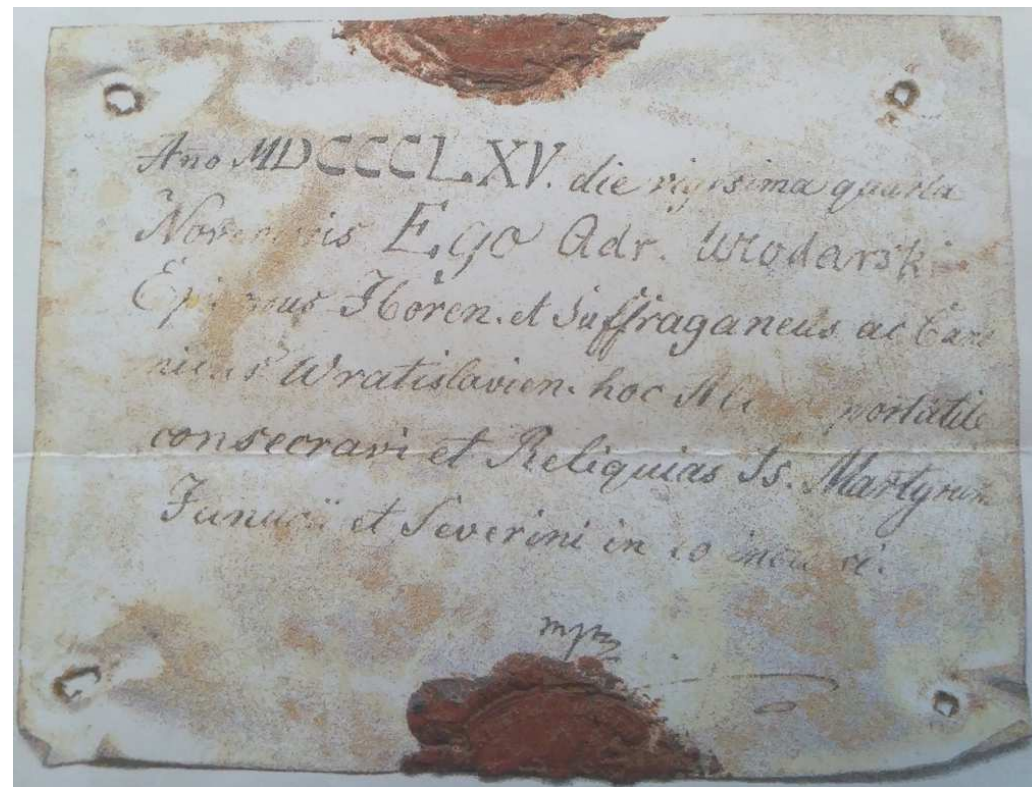 Año MDCCCLXV. die vigesima quarta
Novembris Ego Adr. Wlodarski
Episcopus Iboren. et Suffraganeus ac Cano
nicus Wratislavien. hoc Altare portatile
consecravi et Reliquias Ss. Martyrum
Januarii et Severini in eo inclusi.
mpp